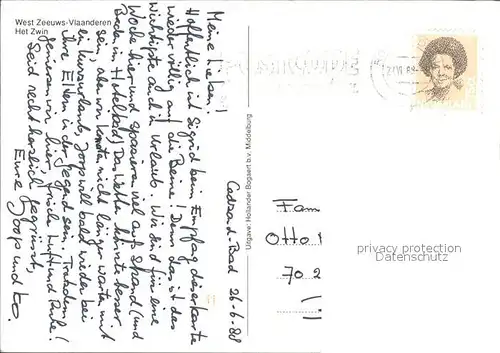 West Zeeuws-Vlaanderen
Het Zwin
Meine Lieben!
Hoffentlich ist Sigrid beim Empfang dieser Karte
wieder völlig auf die Beine! Denn das ist das
Wichtigste auch im Urlaub. Wir sind für eine
Woche hier und spazieren viel aufs Strand (und
Baden im Hotelbad). Das Wetter könnte besser
sein, aber wir konnten nicht länger warten mit
ein Kurzurlaub, Joop will bald wieder bei
ihre Eltern in der Gegend sein. Trotzdem
genießen wir hier, frische Luft und Ruhe!
Seid recht herzlich gegrüsst,
Eure Joop und Ko.
Cadzand Bad 26-6-88
Uitgave: Hollander Bogaert b.v. Middelburg
Fam
Otto
702
privacy protection
Datenschutz